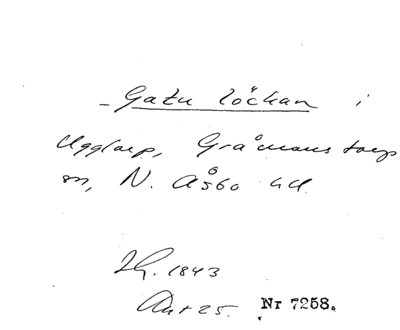 - Gatu löckan i
Ugglarp, Gråmanstorps
sn, N. Åsbo hd.
1843
Ant 25. Nr 7258.